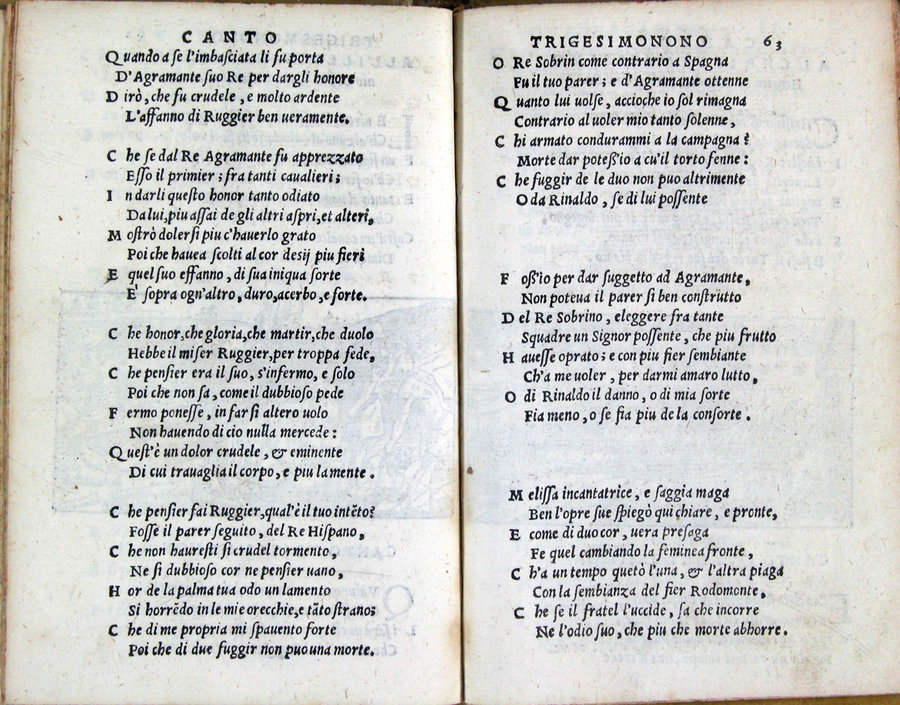 CANTO
Quando a se l'imbasciata li fu porta
D'Agramante suo Re per dargli honore
Dirò, che fu crudele, e molto ardente
L'affanno di Ruggier ben ueramente.
Che se dal Re Agramante fu apprezzato
Esso il primier; fra tanti caualieri;
In darli questo honor tanto odiato
Da lui, piu assai de gli altri aspri, et alteri,
Mostrò dolersi piu c'hauerlo grato
Poi che hauea scolti al cor desij piu fieri
E quel suo effanno, di sua iniqua sorte
E' sopra ogn'altro, duro, acerbo, e forte.
Che honor, che gloria, che martir, che duolo
Hebbe il miser Ruggier, per troppa fede,
Che pensier era il suo, s'infermo, e solo
Poi che non sa, come il dubbioso pede
Fermo ponesse, in far si altero uolo
Non hauendo di cio nulla mercede:
Quest'è un dolor crudele, & eminente
Di cui trauaglia il corpo, e piu la mente.
Che pensier fai Ruggier, qual'è il tuo intēto?
Fosse il parer seguito, del Re Hispano,
Che non hauresti si crudel tormento,
Ne si dubbioso cor ne pensier uano,
Hor de la palma tua odo un lamento
Si horrēdo in le mie orecchie, e tāto strano;
Che di me propria mi spauento forte
Poi che di due fuggir non puo una morte.
TRIGESIMONONO 63
O Re Sobrin come contrario a Spagna
Fu il tuo parer; e d'Agramante ottenne
Quanto lui uolse, accioche io sol rimagna
Contrario al uoler mio tanto solenne,
Chi armato condurammi a la campagna?
Morte dar potess'io a cu'il torto fenne:
Che fuggir de le duo non puo altrimente
O da Rinaldo, se di lui possente
Foss'io per dar suggetto ad Agramante,
Non poteua il parer si ben construtto
Del Re Sobrino, eleggere fra tante
Squadre un Signor possente, che piu frutto
Hauesse oprato; e con piu fier sembiante
Ch'a me uoler, per darmi amaro lutto,
O di Rinaldo il danno, o di mia sorte
Fia meno, o se fia piu de la consorte.
Melissa incantatrice, e saggia maga
Ben l'opre sue spiegò qui chiare, e pronte,
E come di duo cor, uera presaga
Fe quel cambiando la feminea fronte,
Ch'a un tempo quetò l'una, & l'altra piaga
Con la sembianza del fier Rodomonte,
Che se il fratel l'uccide, sa che incorre
Ne l'odio suo, che piu che morte abhorre.